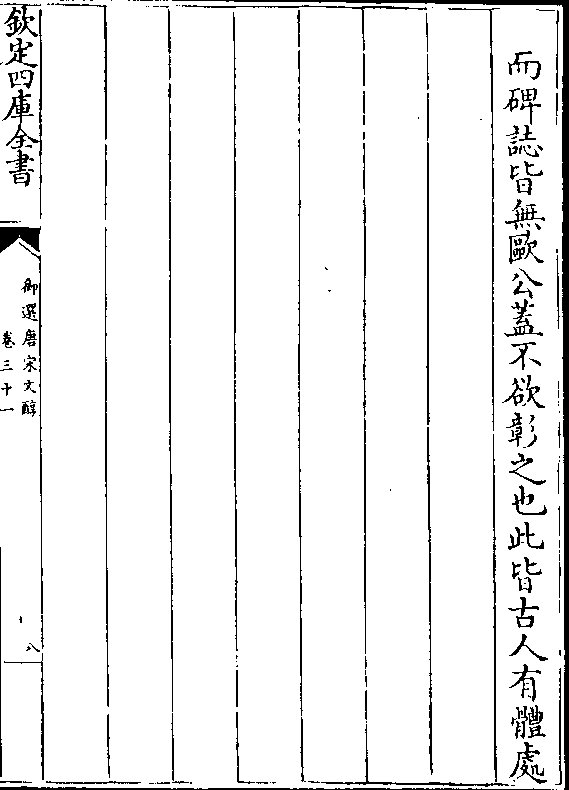 而碑誌皆無歐公蓋不欲彰之也此皆古人有體處
欽定四庫全書
御選唐宋文醇
卷三十一
十八